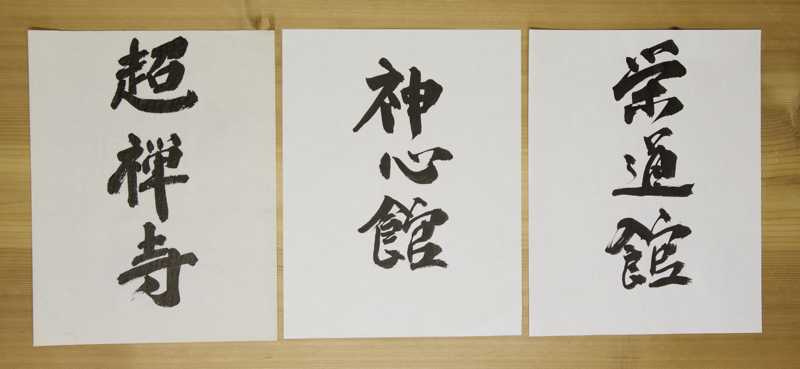 超禅寺
神心館
栄道館